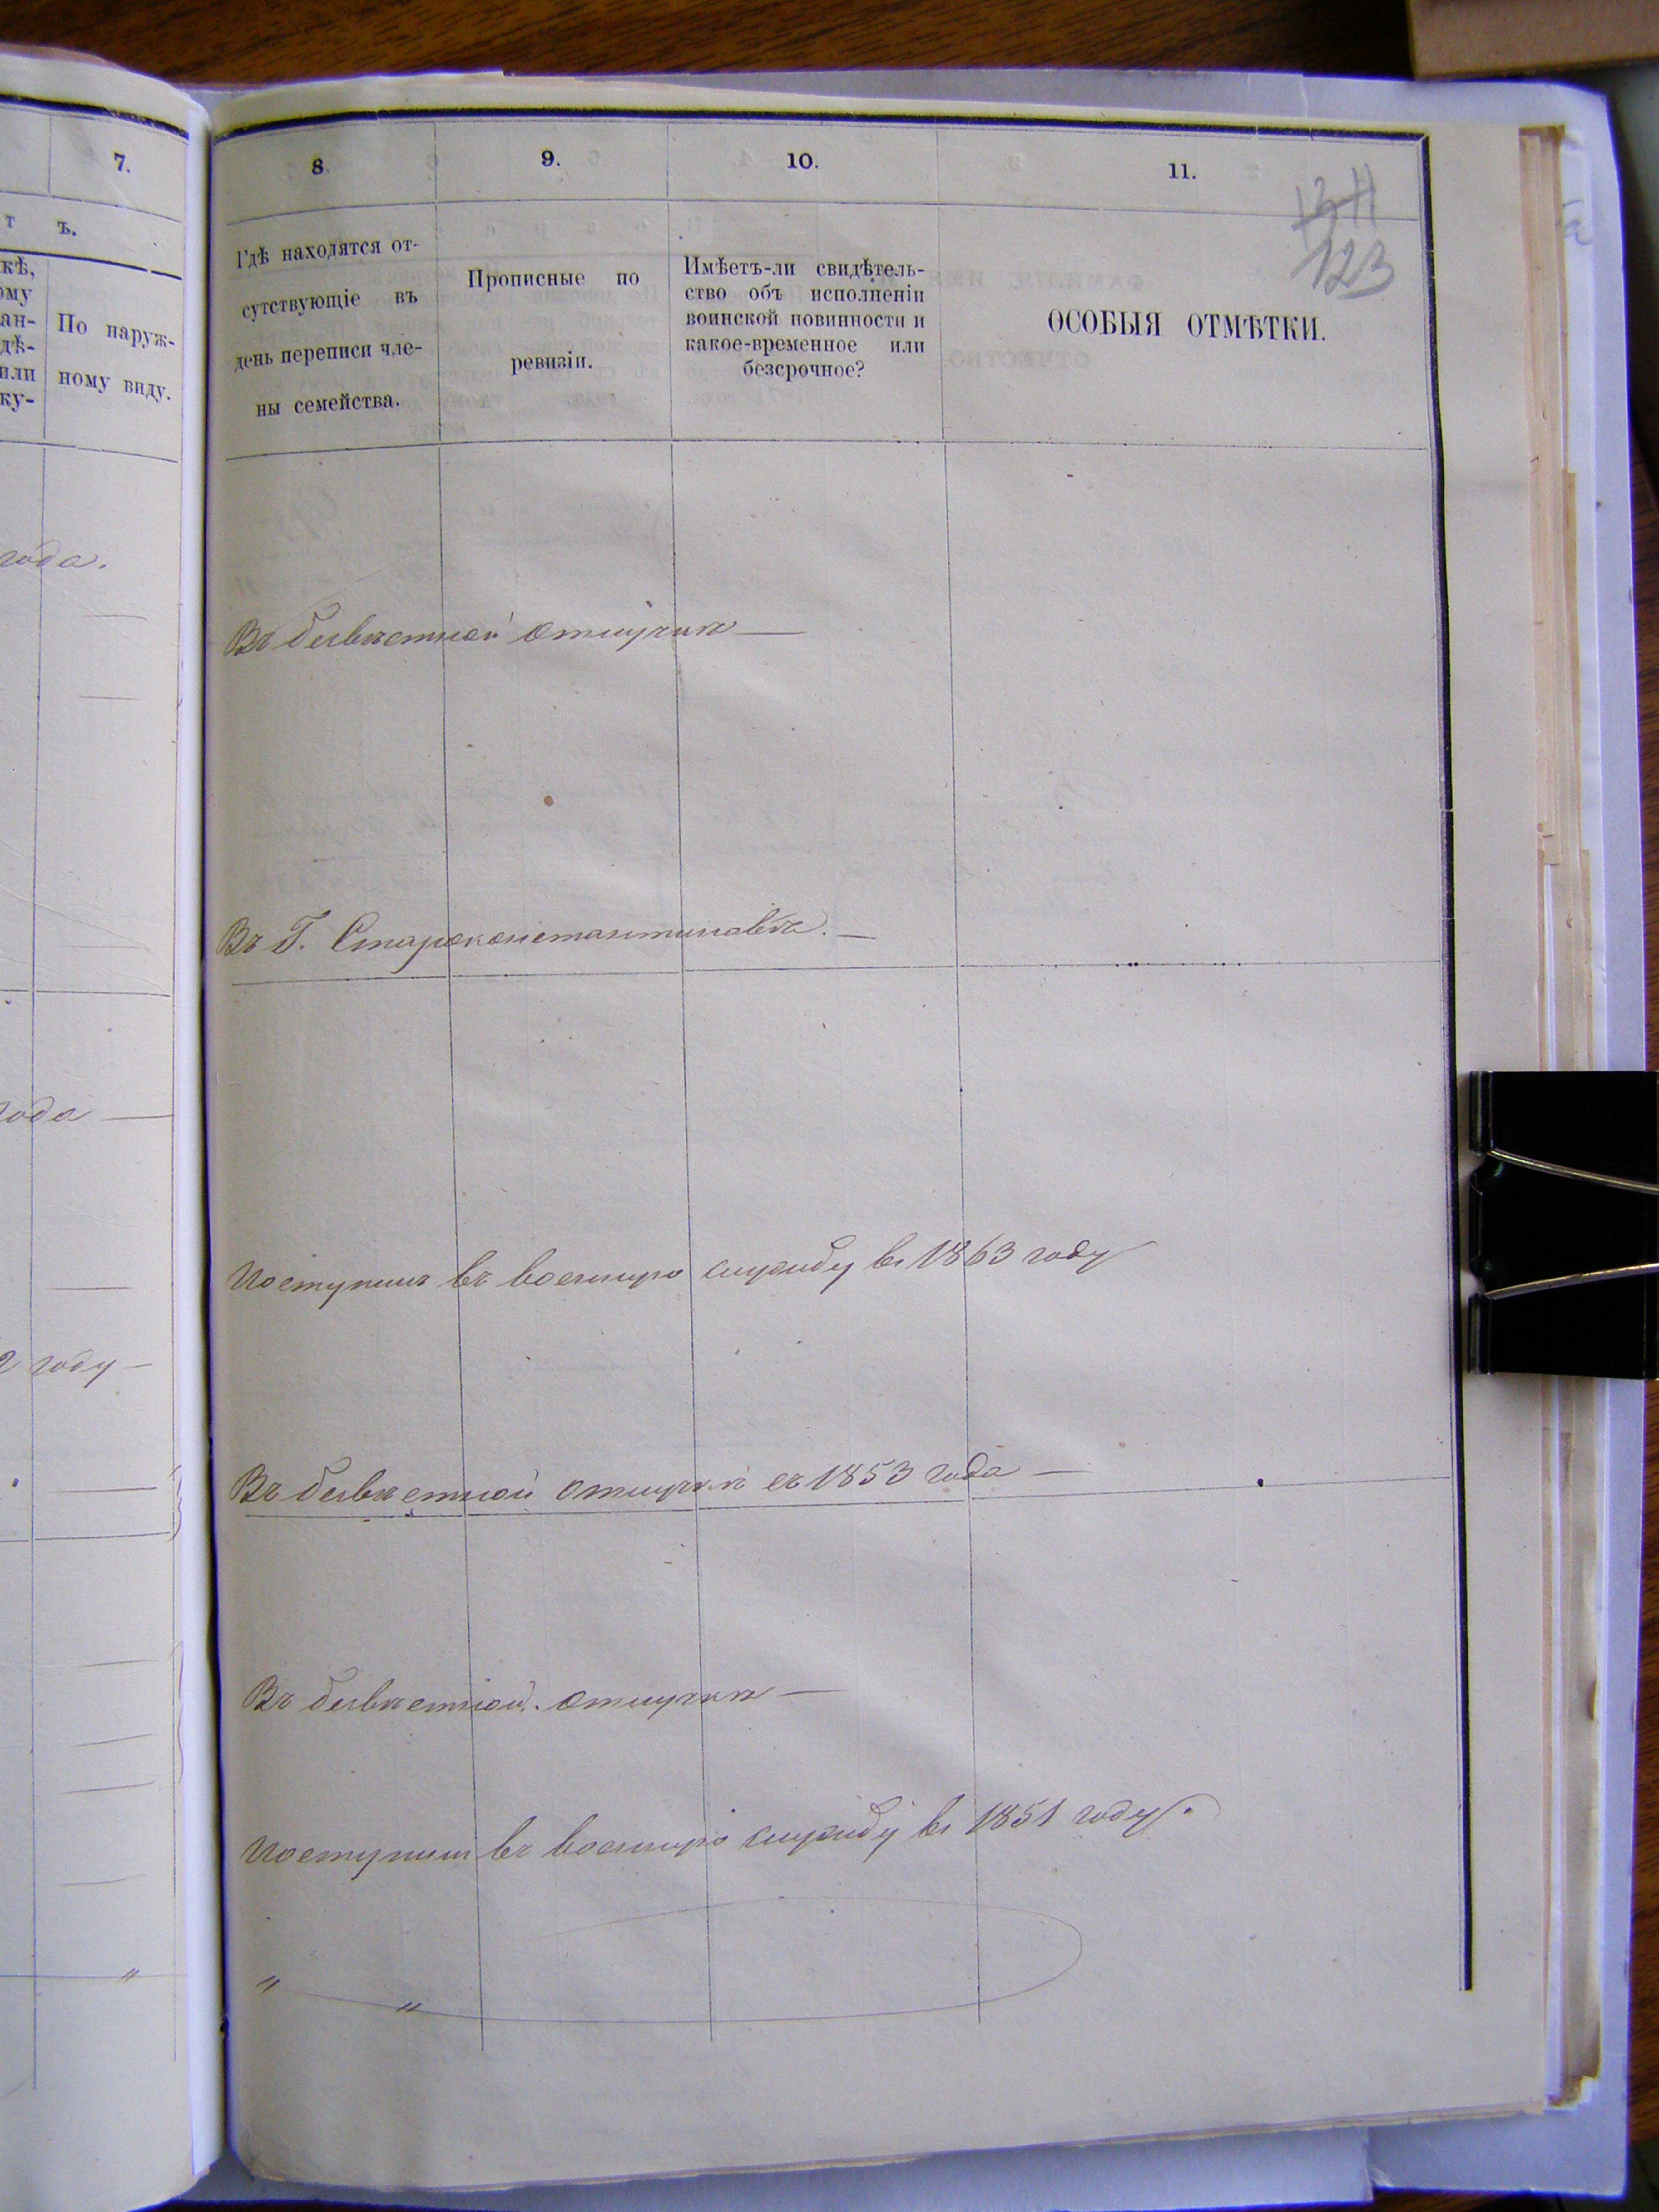 7.
т ъ.
кѣ,
ому
ан-
дѣ-
или
ку-
По наруж-
ному виду.
года.
года
2 году
8.
9.
10.
11.
123
Гдѣ находятся от-
сутствующіе въ
день переписи чле-
ны семейства.
Прописные по
ревизіи.
Имѣетъ-ли свидѣтель-
ство объ исполненіи
воинской повинности и
какое-временное или
безсрочное?
ОСОБЫЯ ОТМѢТКИ.
Въ безвѣстной отлучкѣ —
Въ Г. Староконстантиновѣ. —
Поступилъ въ военную службу въ 1863 году
Въ безвѣстной отлучкѣ съ 1853 года —
Въ безвѣстной отлучкѣ —
Поступилъ въ военную службу въ 1851 году.